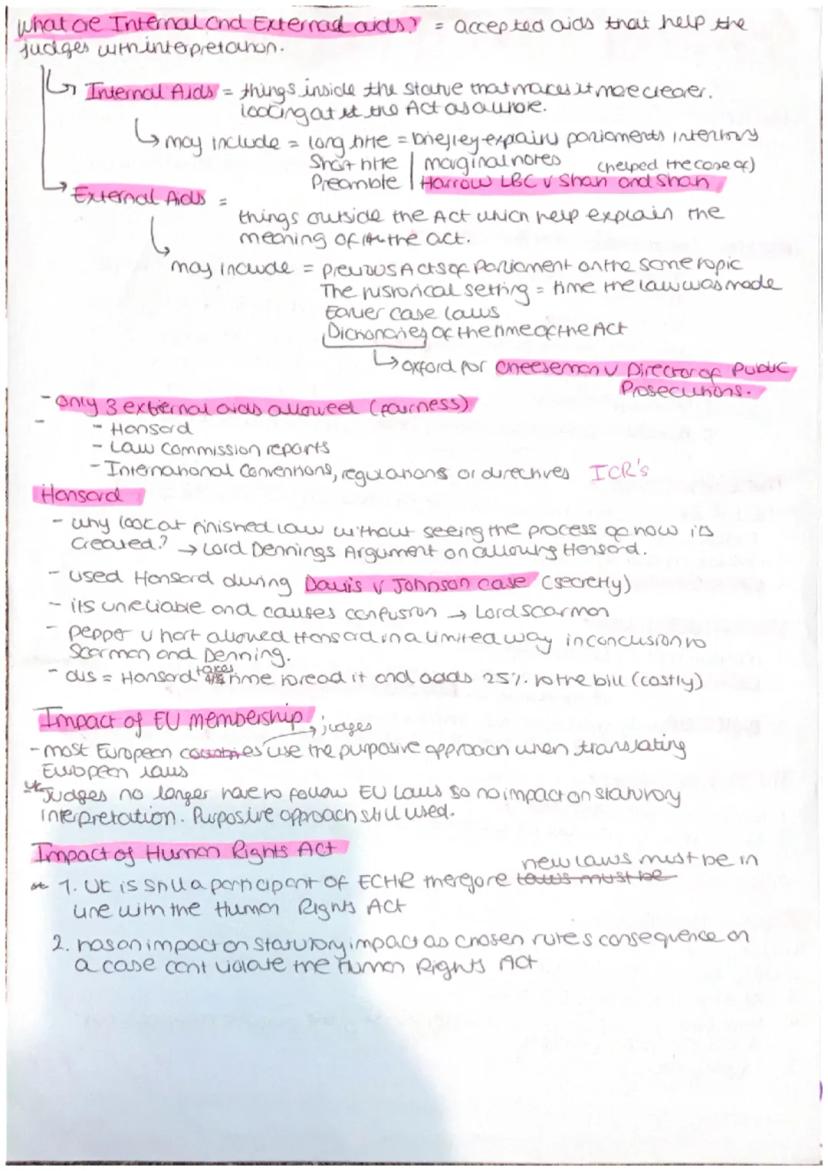 What are Internal and External aids? = accepted aids that help the
judges with interpretation.
Internal Aids = things inside the statue that makes it more clearer.
looking at the Act as a whole.
may include = long title = briefley explains parliaments intentions
Short title | marginal notes (helped the case of)
Preamble | Harrow LBC v Shah and Shah
External Aids =
things outside the Act which help explain the
meaning of the act.
may include = previous Acts of Parliament on the same topic
The historical setting = time the law was made
Earlier case laws
Dichonaries of the time of the Act
oxford for Cheeseman v Director of Public
Prosecutions.
- only 3 external aids allowed (fairness)
- Hansard
- Law Commission reports
- International Conventions, regulations or directives ICR's
Hansard
- why look at finished law without seeing the process of how it's
created? → Lord Dennings Argument on allowing Hansard.
- used Hansard during Davis v Johnson case (secretly)
- its unreliable and causes confusion → Lord Scarman
- Pepper v hart allowed Hansard in a limited way in conclusion to
Scarman and Denning.
- dis = Hansard takes time to read it and adds 25% to the bill (costly)
Impact of EU membership
judges
- most European countries use the purposive approach when translating
European laws
* Judges no longer have to follow EU Laws so no impact on statutory
interpretation. Purposive approach still used.
Impact of Human Rights Act
new laws must be in
* 1. UK is still a participant of ECHR therefore laws must be
line with the Human Rights Act
2. has an impact on statutory impact as chosen rules consequence on
a case cant violate the Human Rights Act